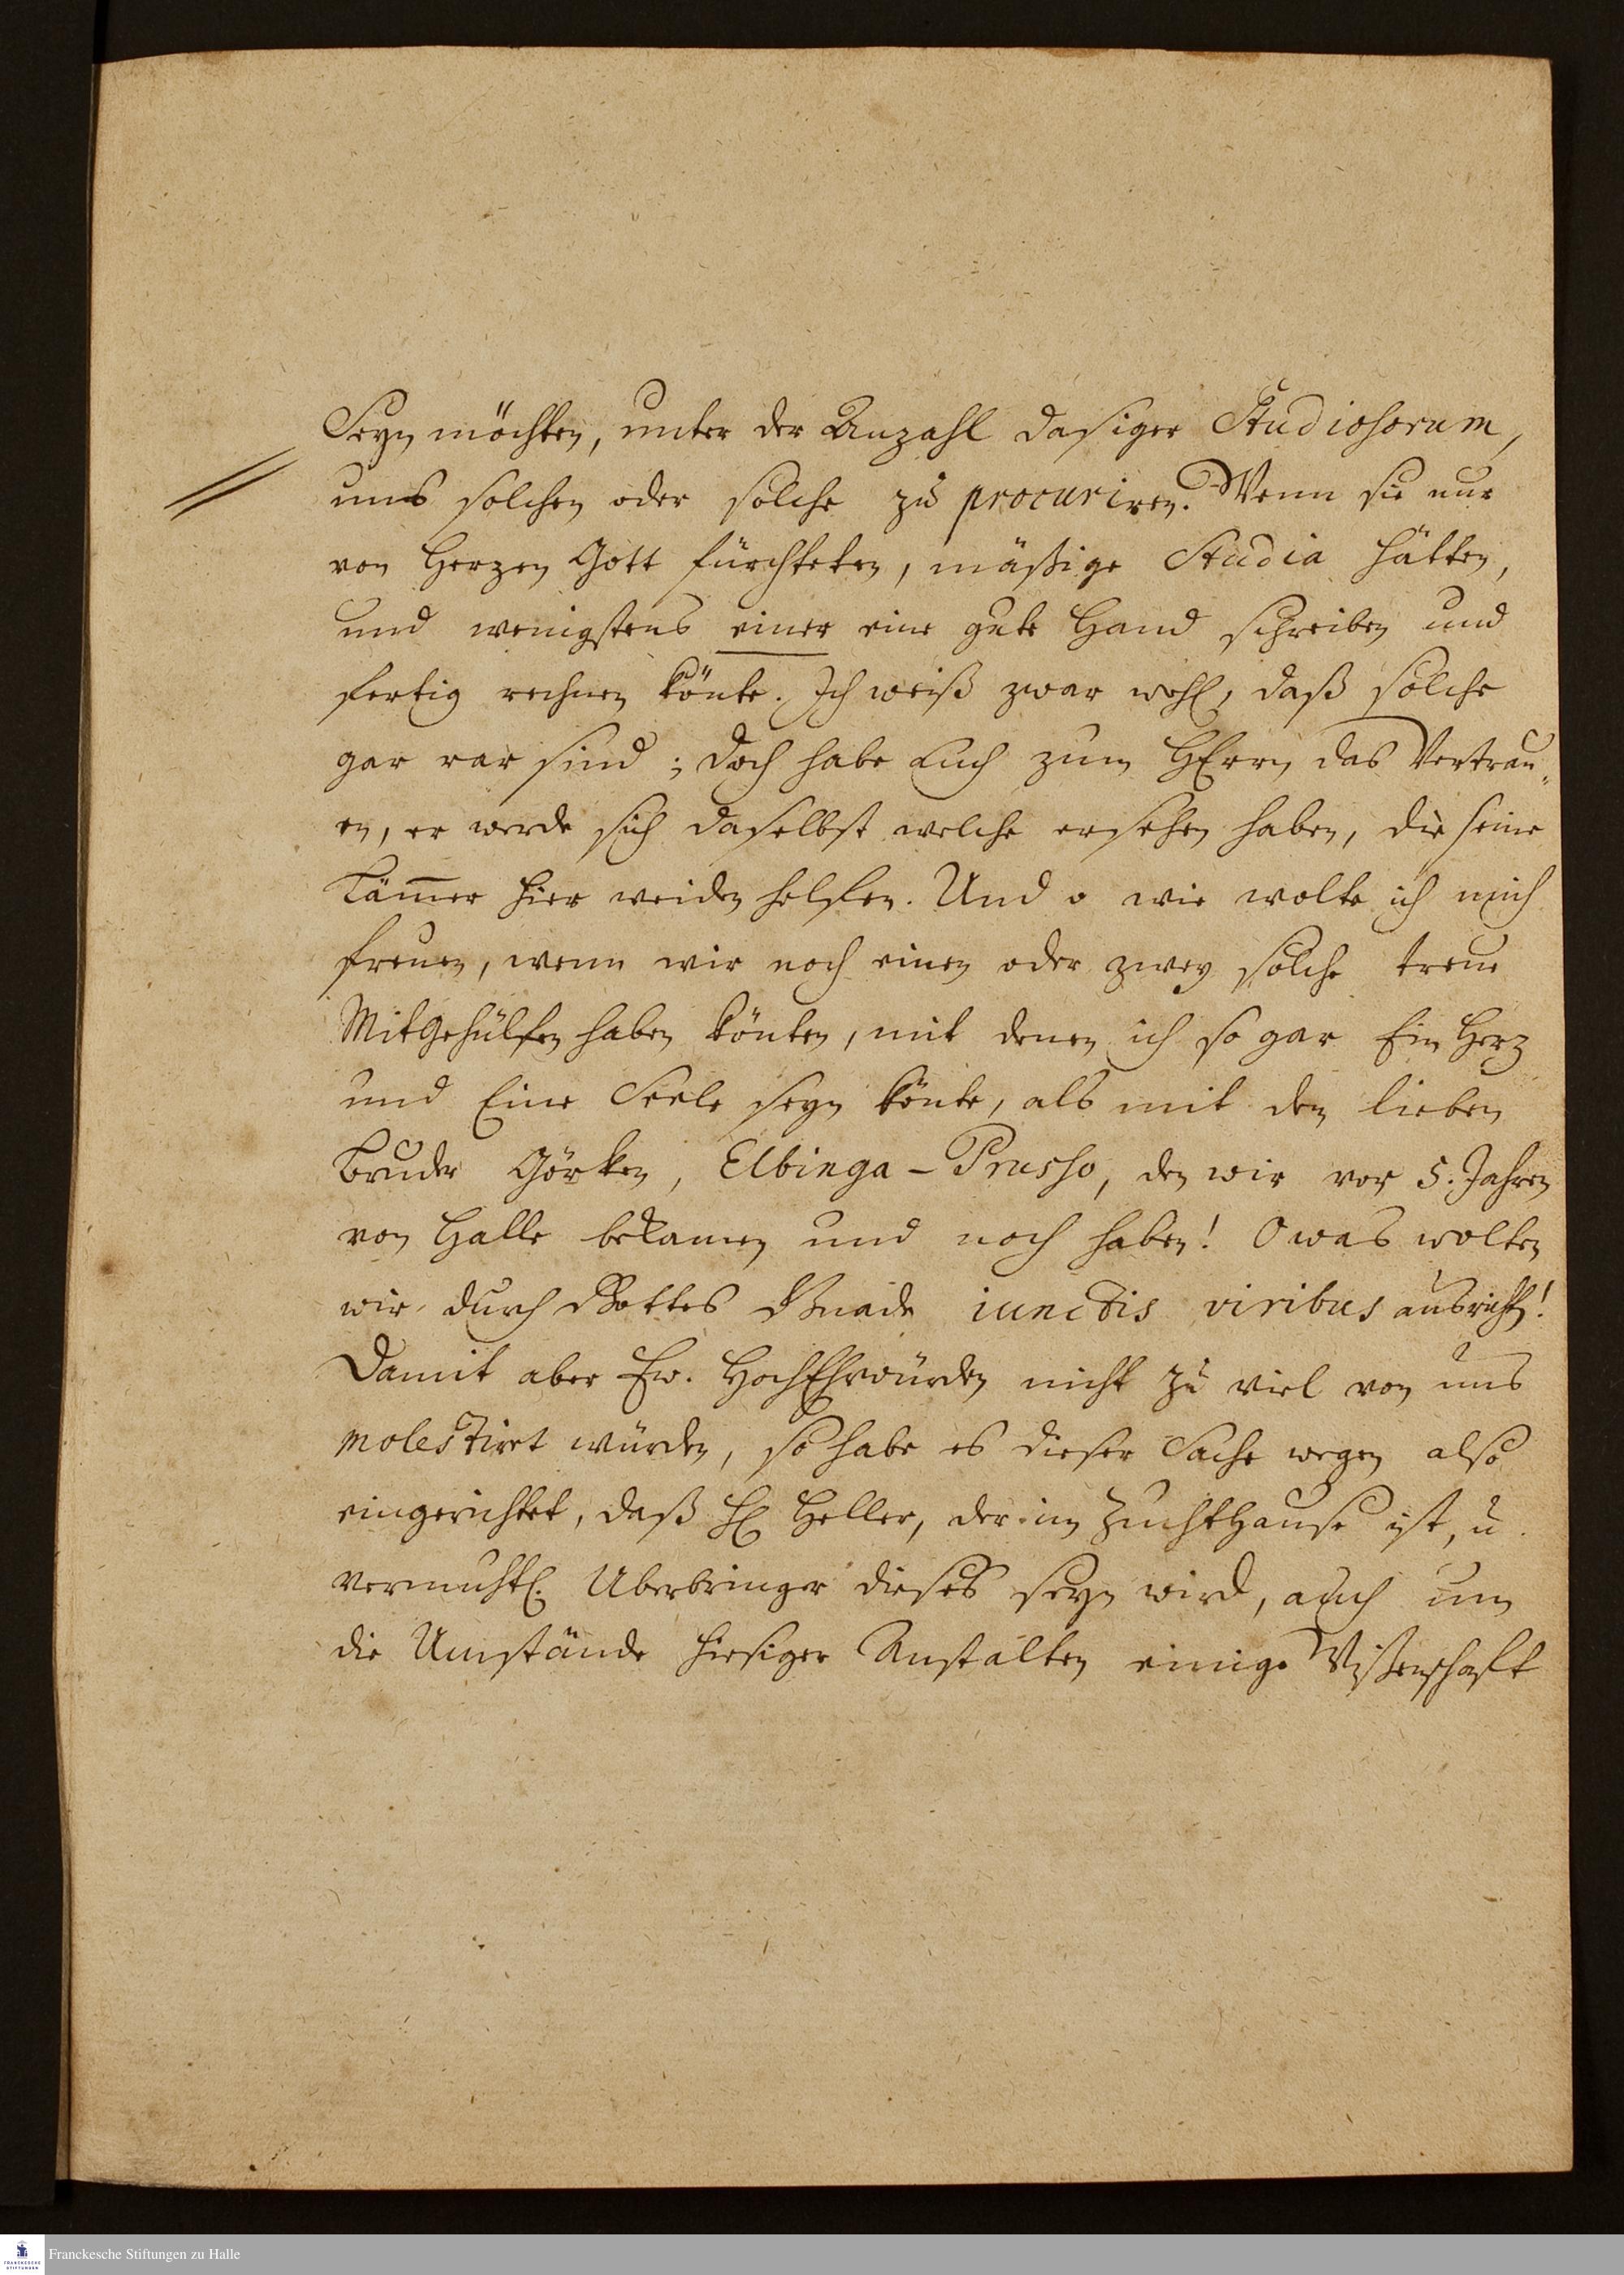 Seyn möchten, unter der Anzahl dasiger Studiosorum,
uns solchen oder solche zu procuriren. Wenn sie nur
von Herzen Gott fürchteten, mäßige Studia hätten,
und wenigstens einer eine gute Hand schreiben und
fertig rechnen könte. Ich weiß zwar wohl, daß solche
gar rar sind; doch habe auch zum HErrn das Vertrau„
en, er werde sich daselbst welche ersehen haben, die seine
Lämer hier weiden helffen. Und o wie wolte ich mich
freuen, wenn wir noch einen oder zwey solche treue
MitGehülfen haben könten, mit denen ich so gar Ein Herz
und Eine Seele seyn könte, als mit dem lieben
Bruder Görken, Elbinga-Prusso, den wir vor 5. Jahren
von Halle bekamen und noch haben! O was wolten
wir durch Gottes Gnade iunctis viribus ausricht!
Damit aber Ew. HochEhrwürden nicht zu viel von uns
molestiret würden, so habe es dieser Sache wegen also
eingerichtet, daß H Heller, der im Zuchthause ist, u.
vermuhtl. Uberbringer dieses seyn wird, auch um
die Umstände hiesiger Anstalten einige Wißenschaft
Franckesche Stiftungen zu Halle